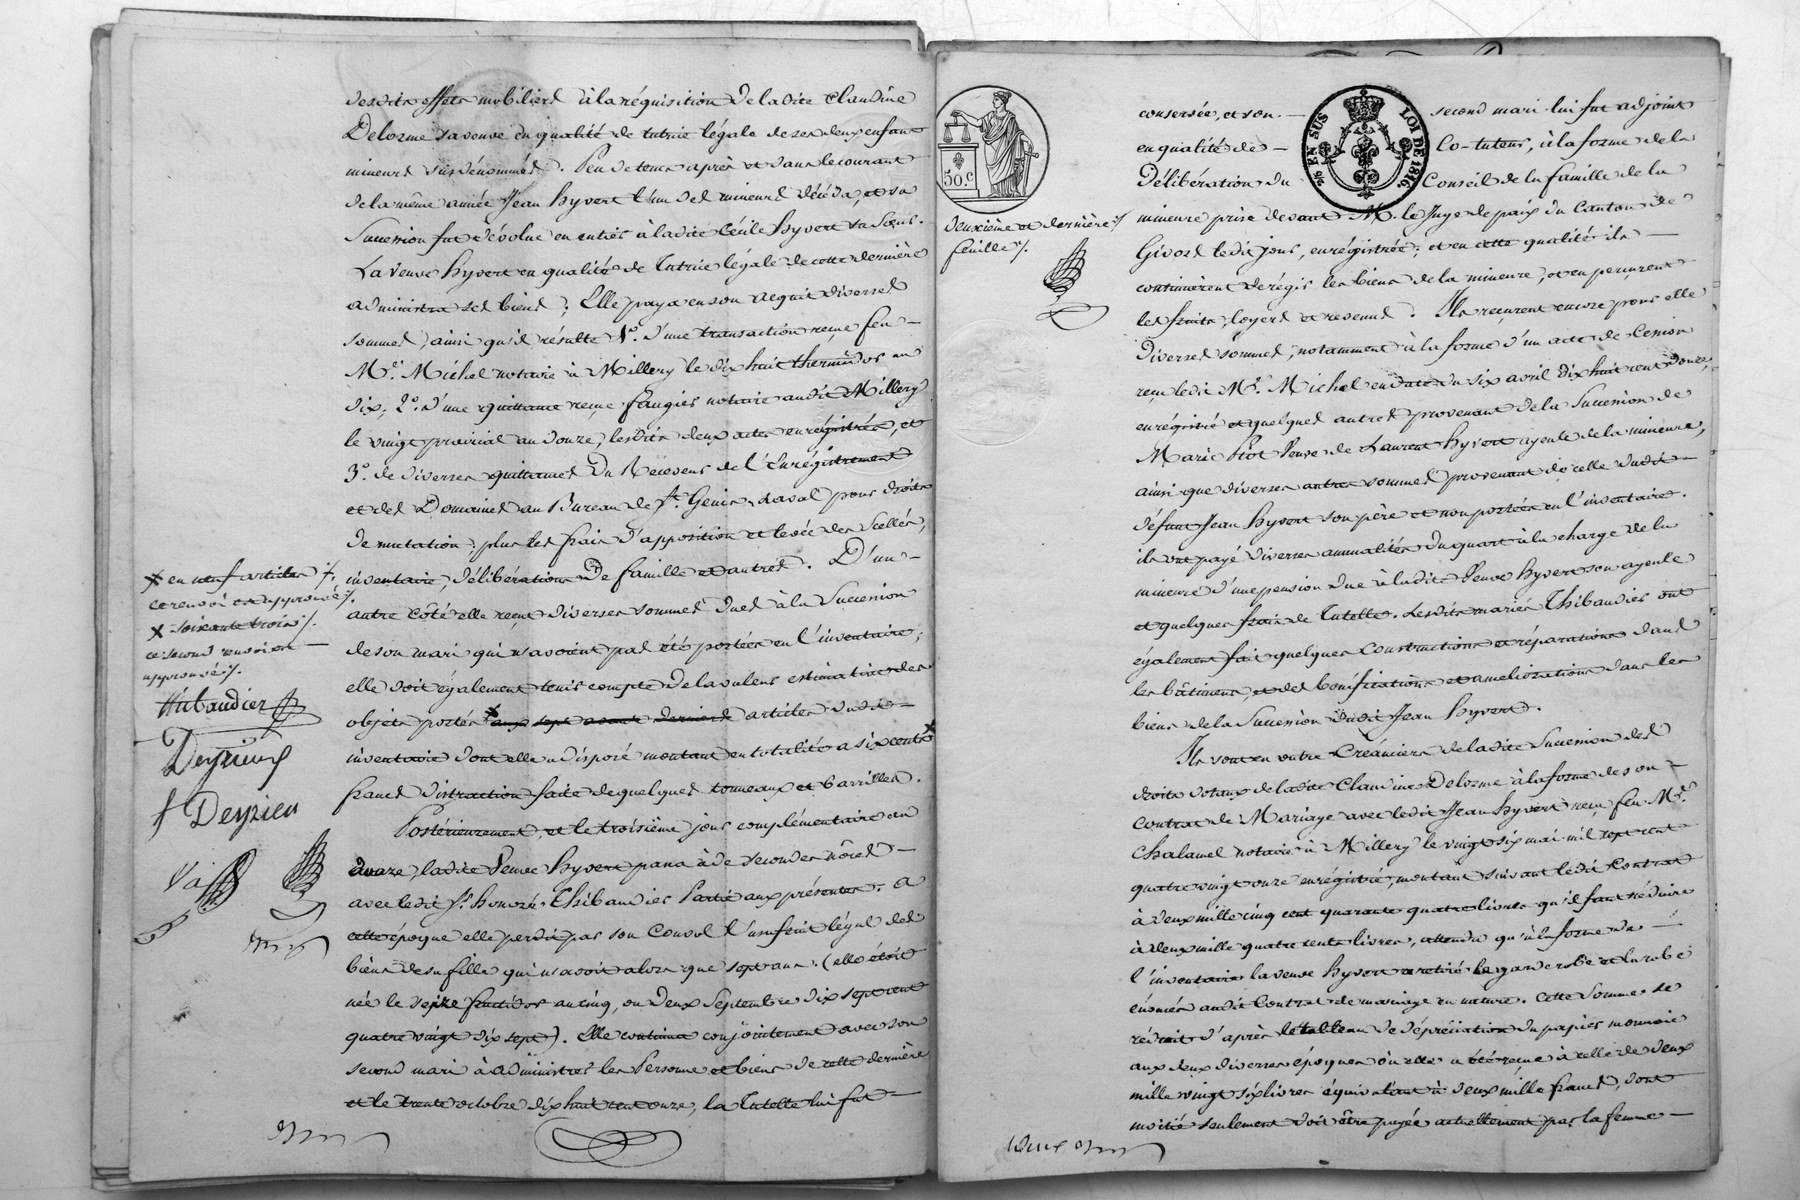 desdits effets mobiliers à la réquisition de ladite Claudine
Delorme sa veuve en qualité de tutrice légale de ses deux enfans
mineurs susdénommés. Peu de tems après et dans le courant
de la même année Jean hyvert l'un des mineurs décéda, et sa
Succession fut dévolue en entier à ladite Cécile hyvert sa Sœur.
La Veuve hyvert en qualité de Tutrice légale de cette dernière
administra ses biens; Elle paya en son acquit diverses
sommes, ainsi qu'il résulte 1°. d'une transaction reçue feu —
Me. Michel notaire à Millery le dix huit thermidor an
dix; 2°. d'une quittance reçue Faugier notaire audit Millery
le vingt prairial an douze, lesdits deux actes enregistrés, et
3°. de diverses quittances du Receveur de l'Enrégistrement
et des Domaines au Bureau de St. Genis-Laval pour droits
de mutation; plus les frais d'apposition et levée des Scellés,
inventaire, délibérations de famille et autres. D'un —
autre côté elle reçut diverses sommes dues à la Succession
de son mari qui n'avoient pas été portées en l'inventaire;
elle doit également tenir compte de la valeur estimative des
objets portés aux sept avant derniers articles dudit —
inventaire dont elle a disposé montant en totalité a six cents
francs distraction faite de quelques tonneaux et barrilles.
Postérieurement, et le troisième jour complémentaire an
douze, ladite Veuve hyvert passa à de secondes nôces —
avec ledit Sr. honoré Thibaudier Partie aux présentes. A
cette époque elle perdit par son Convol l'usufruit légal des
biens de sa fille qui n'avoit alors que sept ans. (elle étoit
née le seize fructidor an cinq, ou deux Septembre dix sept cent
quatre vingt dix sept). Elle continua conjointement avec son
second mari à administrer les Personne et biens de cette dernière
et le trente octobre dix huit cent onze, la Tutelle lui fut —
x en neuf articles /.
ce renvoi est approuvé /.
x soixante trois /.
ce second renvoi est —
approuvé /.
thibaudier
Deyrieux
f Deyrieu
50.c
2/16 EN SUS LOI DE 1816.
deuxième et dernière /
feuille /.
conservée, et son — second mari lui fut adjoint
en qualité de — Co-tuteur, à la forme de la
Délibération du Conseil de la famille de la
mineure prise devant M. le Juge de paix du Canton de
Givors ledit jour, enrégistrée; et en cette qualité ils —
continuèrent de régir les biens de la mineure, et en perçurent
les fruits, loyers et revenus. Ils reçurent encore pour elle
diverses sommes, notamment à la forme d'un acte de Cession
reçu ledit Me. Michel en date du six avril dix huit cent douze,
enrégistré et quelques autres provenant de la Succession de
Marie Piot Veuve de Laurent hyvert ayeule de la mineure,
ainsi que diverses autres sommes provenant de celle dudit —
défunt Jean hyvert son père et non portées en l'inventaire.
ils ont payé diverses annualités du quart à la charge de la
mineure d'une pension due à ladite Veuve hyvert son ayeule
et quelques frais de Tutelle. Lesdits mariés Thibaudier ont
également fait quelques Constructions et réparations dans
les bâtimens et des bonifications et améliorations dans les
biens de la Succession dudit Jean hyvert.
Ils sont en outre Créanciers de ladite Succession des
droits dotaux de ladite Claudine Delorme à la forme de son —
Contrat de Mariage avec ledit Jean hyvert reçu feu Me.
Chalamel notaire à Millery le vingt six mai mil sept cent
quatre vingt onze enrégistré, montant suivant ledit Contrat
à deux mille cinq cent quarante quatre livres qu'il faut réduire
à deux mille quatre cents livres, attendu qu'à la forme de —
l'inventaire la veuve hyvert a retiré le garderobe et la robe
énoncés audit Contrat de mariage en nature. Cette Somme se
réduit d'après le tableau de dépréciation du papier monnoie
aux deux diverses époques où elle a été reçue à celle de deux
mille vingt six livres équivalant à deux mille francs, dont
moitié seulement doit être payée actuellement par la femme —